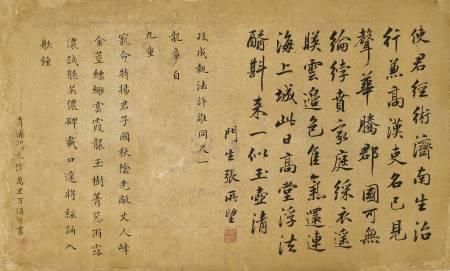 使君經術濟南生治
行兼高漢吏名已見
聲華騰郡國可無
綸綍賁家庭綵衣遙
映雲邊色隹氣還連
海上城此日高堂浮法
醑斟來一似玉壺清
門生張所望
政成執法許誰同尺一
龍章自
九重
寵命特揚君子國秩陰先敞丈人峰
金莖縹緲雲霞麗玉樹菁蔥雨露
濃試聽吳儂碑載口遙將絃誦入
歌鐘